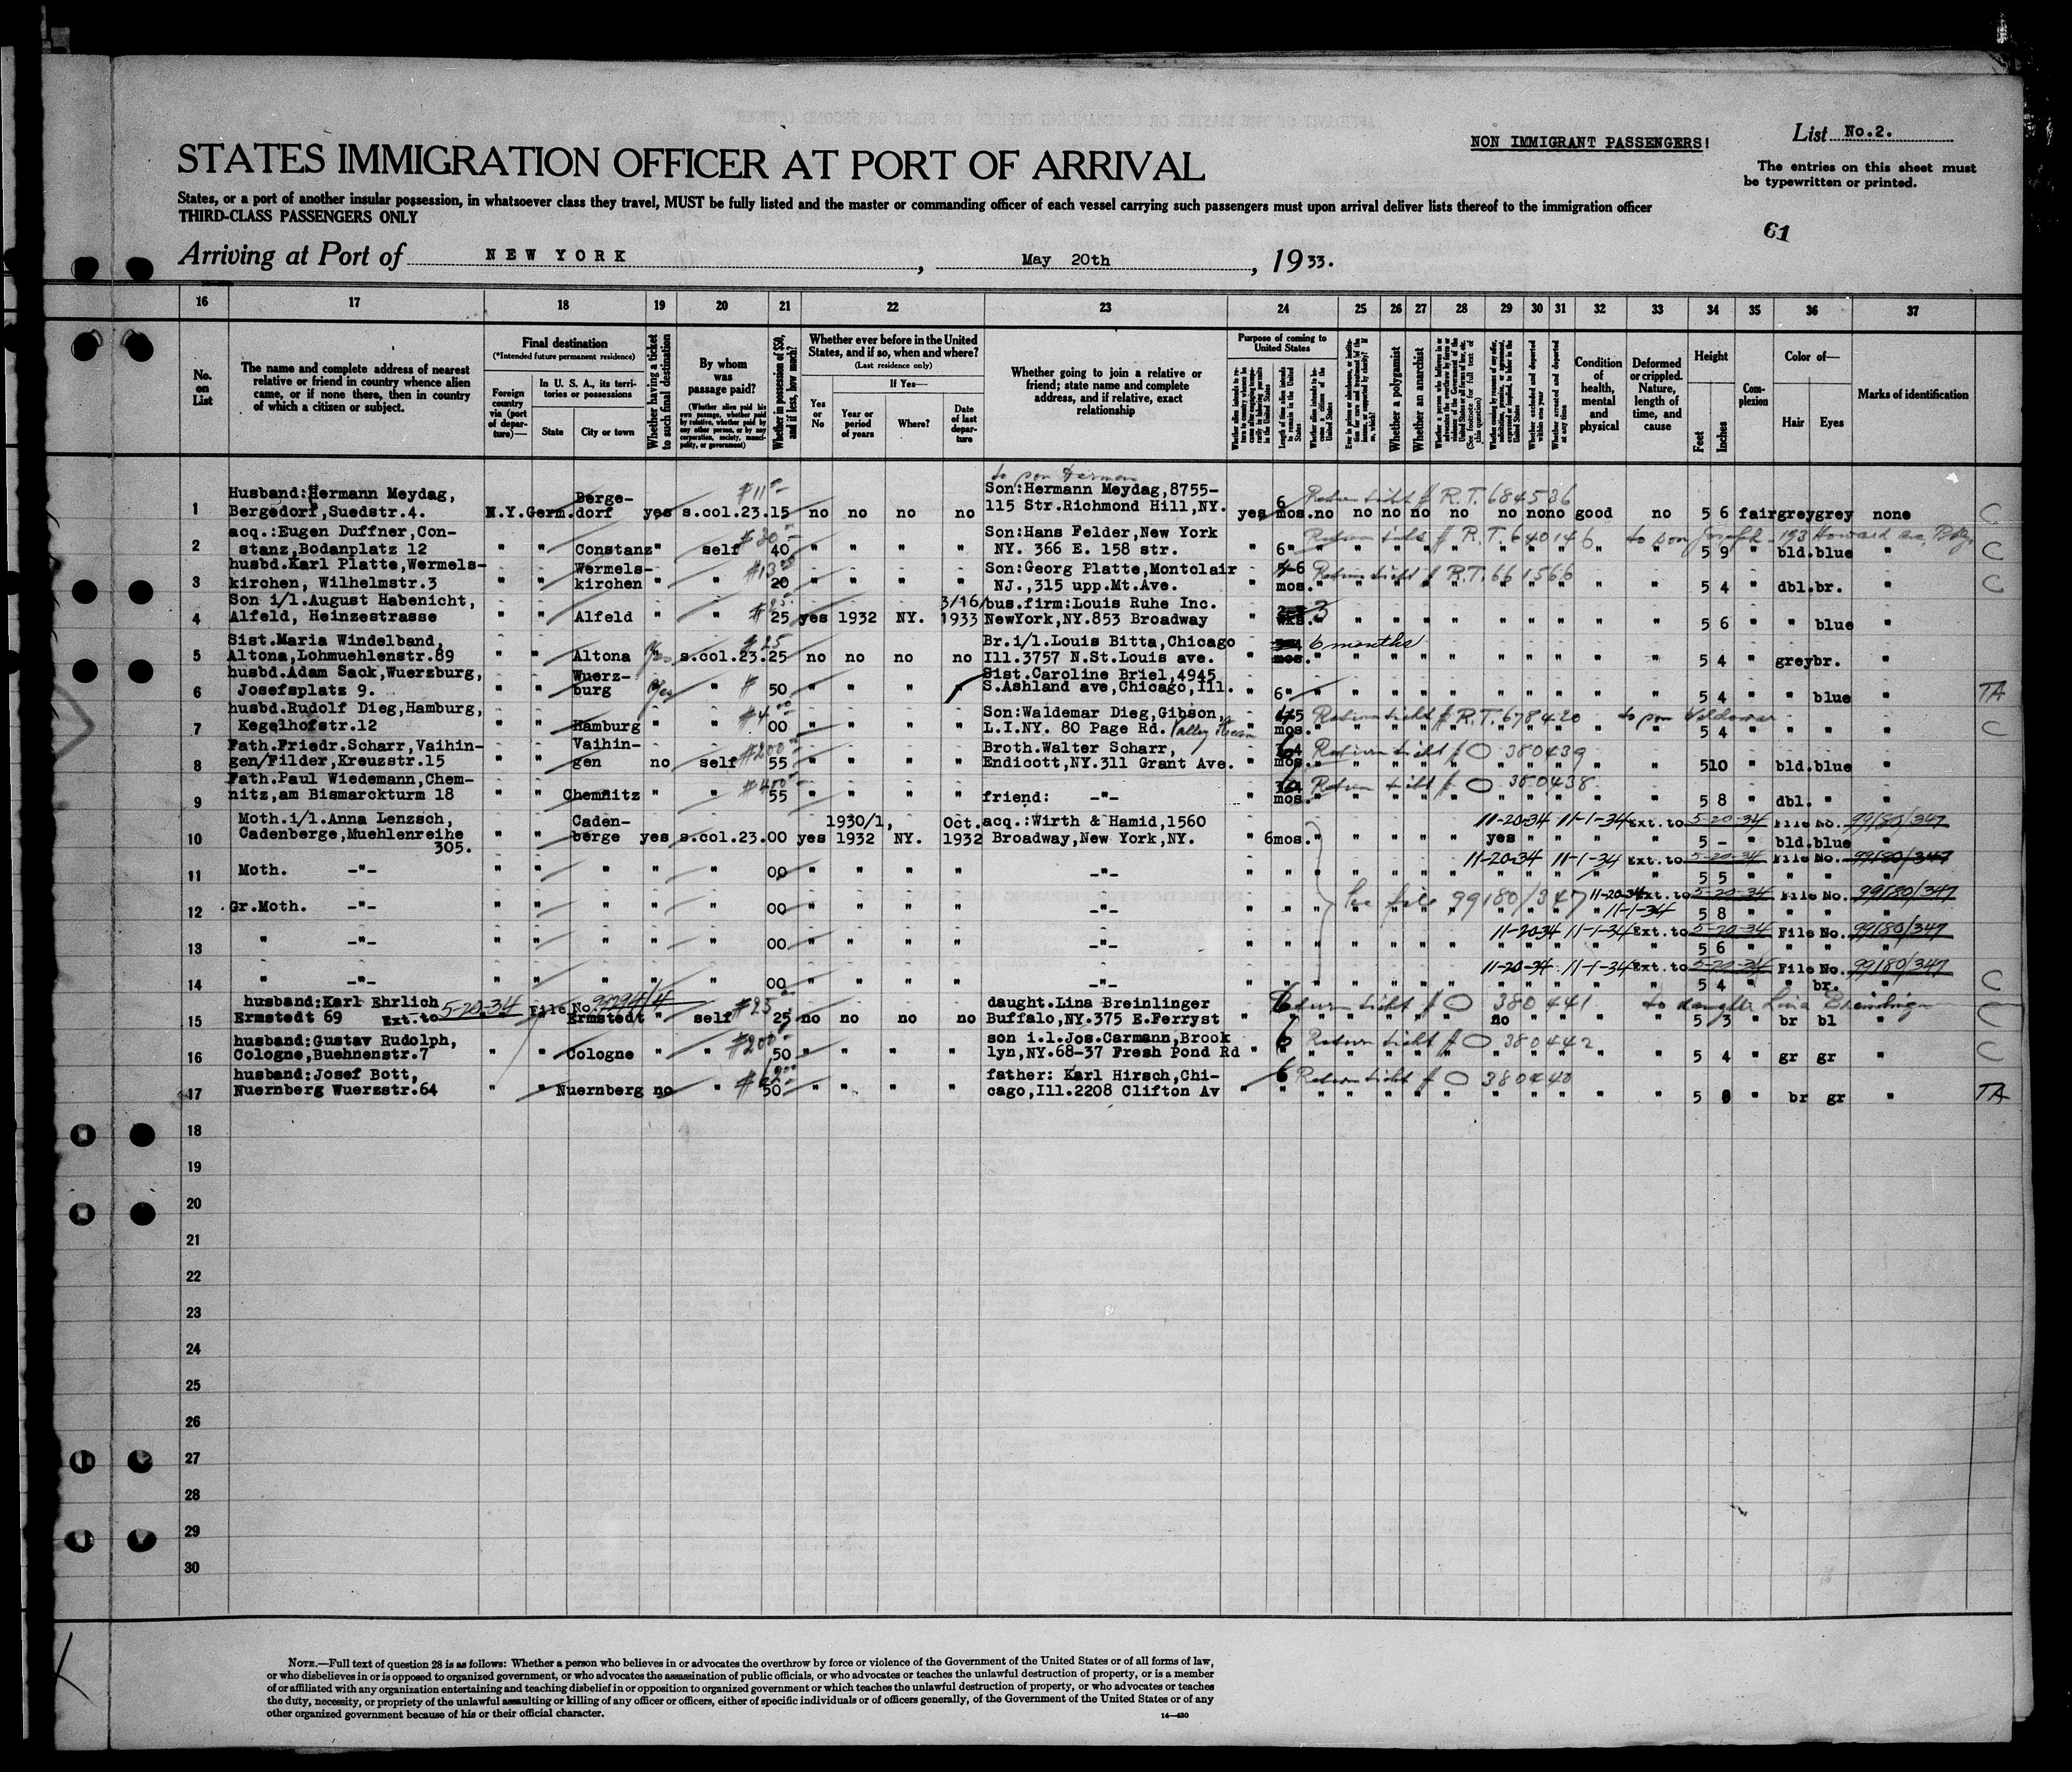 NON IMMIGRANT PASSENGERS!
List No.2.
STATES IMMIGRATION OFFICER AT PORT OF ARRIVAL
The entries on this sheet must
be typewritten or printed.
States, or a port of another insular possession, in whatsoever class they travel, MUST be fully listed and the master or commanding officer of each vessel carrying such passengers must upon arrival deliver lists thereof to the immigration officer
THIRD-CLASS PASSENGERS ONLY
61
Arriving at Port of NEW YORK, May 20th, 1933.
16 17 18 19 20 21 22 23 24 25 26 27 28 29 30 31 32 33 34 35 36 37
No. on List
The name and complete address of nearest
relative or friend in country whence alien
came, or if none there, then in country
of which a citizen or subject.
Final destination
(*Intended future permanent residence)
Foreign country via (port of departure)—
In U. S. A., its territories or possessions
State
City or town
Whether having a ticket to such final destination
By whom was passage paid?
(Whether alien paid his own passage, whether paid by relative, whether paid by any other person, or by any corporation, society, municipality, or government)
Whether in possession of $50, and if less, how much?
Whether ever before in the United States, and if so, when and where?
(Last residence only)
If Yes—
Yes or No
Year or period of years
Where?
Date of last departure
Whether going to join a relative or
friend; state name and complete
address, and if relative, exact
relationship
Purpose of coming to United States
Length of time alien intends to remain in the United States
Whether a polygamist
Whether an anarchist
Whether excluded and deported within one year
Whether arrested and deported at any time
Condition of health, mental and physical
Deformed or crippled. Nature, length of time, and cause
Height
Feet
Inches
Complexion
Color of—
Hair
Eyes
Marks of identification
to son Herman
1 Husband:Hermann Meydag,
Bergedorf,Suedstr.4. N.Y.Germ. Berge-
dorf yes s.col.23.15 no no no no Son:Hermann Meydag,8755-
115 Str.Richmond Hill,NY. yes 6 mos.no no no no no no no no good no 5 6 fair grey grey none C
Return ticket # R.T. 684536
2 acq.:Eugen Duffner,Con-
stanz,Bodanplatz 12 " " Constanz " self 40 " " " " Son:Hans Felder,New York
NY. 366 E. 158 str. " 6" 5 9 " bld.blue " C
R.T. 640146 to son Joseph - 193 Howard ave,
3 husbd.Karl Platte,Wermels-
kirchen, Wilhelmstr.3 " " Wermels-
kirchen " " 20 " " " " Son:Georg Platte,Montclair
NJ.,315 upp.Mt.Ave. " mos. 5 4 dbl.br. " C
Return ticket # R.T. 661566
4 Son i/l.August Habenicht,
Alfeld, Heinzestrasse " " Alfeld " " 25 yes 1932 NY. 3/16/
1933 bus.firm:Louis Ruhe Inc.
NewYork,NY.853 Broadway " 3 5 6 " " blue "
5 Sist.Maria Windelband,
Altona,Lohmuehlenstr.89 " " Altona yes s.col.23.25 no no no no Br.i/l.Louis Bitta,Chicago
Ill.3757 N.St.Louis ave. " mos. 6 months 5 4 " grey br. "
6 husbd.Adam Sack,Wuerzburg,
Josefsplatz 9. " " Wuerz-
burg yes " 50 " " " " Sist.Caroline Briel,4945
S.Ashland ave,Chicago,Ill. " 6" 5 4 " " blue " TA
7 husbd.Rudolf Dieg,Hamburg,
Kegelhofstr.12 " " Hamburg " " 00 " " " " Son:Waldemar Dieg,Gibson,
L.I.NY. 80 Page Rd. Valley Stream " mos. 5 4 " " " " C
Return ticket # R.T. 678420 to son
8 Fath.Friedr.Scharr,Vaihin-
gen/Filder,Kreuzstr.15 " " Vaihin-
gen no self 55 " " " " Broth.Walter Scharr,
Endicott,NY.311 Grant Ave. " mos. 5 10 " bld.blue "
Return ticket # O 380439
9 Fath.Paul Wiedemann,Chem-
nitz,am Bismarckturm 18 " " Chemnitz " " 55 " " " " friend: -"- " mos. 5 8 " dbl. " "
Return ticket # O 380438
10 Moth.i/l.Anna Lenzsch,
Cadenberge,Muehlenreihe
305. " " Caden-
berge yes s.col.23.00 yes 1930/1,
1932 NY. Oct.
1932 acq.:Wirth & Hamid,1560
Broadway,New York,NY. " 6mos. " yes 5 - " bld.blue "
11-20-34 11-1-34 Ext.to 5-20-34 File No. 99180/347
11 Moth. -"- " " " " " 00 " " " " -"- 5 5 " " " "
11-20-34 11-1-34 Ext.to 5-20-34 File No. 99180/347
12 Gr.Moth. -"- " " " " " 00 " " " " -"- 5 8 " " " "
See file 99180/347 11-20-34 Ext.to 5-20-34 File No. 99180/347
11-1-34
13 " -"- " " " " " 00 " " " " -"- 5 6 " " " "
11-20-34 11-1-34 Ext.to 5-20-34 File No. 99180/347
14 " -"- " " " " " 00 " " " " -"- 5 4 " " br. " C
11-20-34 11-1-34 Ext.to 5-20-34 File No. 99180/347
15 husband:Karl Ehrlich
Ermstedt 69 Ext.to 5-20-34 File No. Ermstedt " self 25 no no no no daught.Lina Breinlinger
Buffalo,NY.375 E.Ferryst " 6 no 5 3 " br bl " C
Return ticket # O 380441 to daughter Lina Breinlinger
16 husband:Gustav Rudolph,
Cologne,Buehnenstr.7 " " Cologne " " 50 " " " " son i.l.Jos.Carmann,Brook
lyn,NY.68-37 Fresh Pond Rd " 6 5 4 " gr gr " C
Return ticket # O 380442
17 husband:Josef Bott,
Nuernberg Wuerzstr.64 " " Nuernberg no " 50 " " " " father: Karl Hirsch,Chi-
cago,Ill.2208 Clifton Av " 6 5 " br gr " TA
Return ticket # O 380440
18
19
20
21
22
23
24
25
26
27
28
29
30
NOTE.—Full text of question 28 is as follows: Whether a person who believes in or advocates the overthrow by force or violence of the Government of the United States or of all forms of law,
or who disbelieves in or is opposed to organized government, or who advocates the assassination of public officials, or who advocates or teaches the unlawful destruction of property, or is a member
of or affiliated with any organization entertaining and teaching disbelief in or opposition to organized government or which teaches the unlawful destruction of property, or who advocates or teaches
the duty, necessity, or propriety of the unlawful assaulting or killing of any officer or officers, either of specific individuals or of officers generally, of the Government of the United States or of any
other organized government because of his or their official character.
14—430